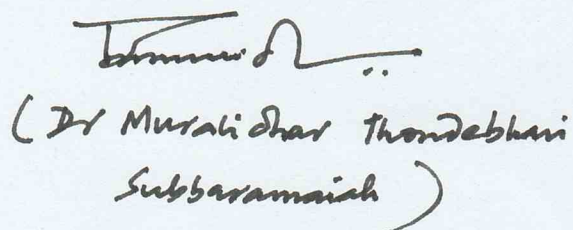 (Dr Muralidhar Thondebhavi
Subbaramaiah)